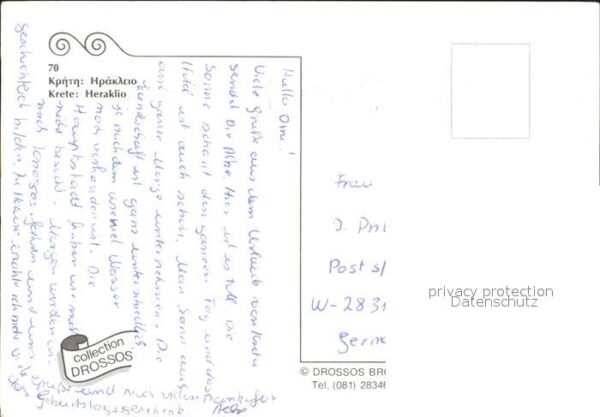 70
Κρήτη: Ηράκλειο
Krete: Heraklio
Hallo Omi!
Viele Grüße aus dem Urlaub von Kreta
sendet Dir Hier ist es toll. Die
Sonne scheint den ganzen Tag und das
ist auch schön. Man kann auch
eine ganze Menge unternehmen. Die
Landschaft ist ganz unterschiedlich,
je nachdem wieviel Wasser
noch vorhanden ist. Die
Hauptstadt haben wir noch
nicht besucht. Morgen werden wir
nach Knossos fahren und uns
geschichtlich bilden. Zu Hause erzähle ich mehr
und noch vielen Dank für
Geburtstagsgeschenk
Frau
Post
W-2831
privacy protection
Datenschutz
collection
DROSSOS
© DROSSOS BRO
Tel. (081) 28346